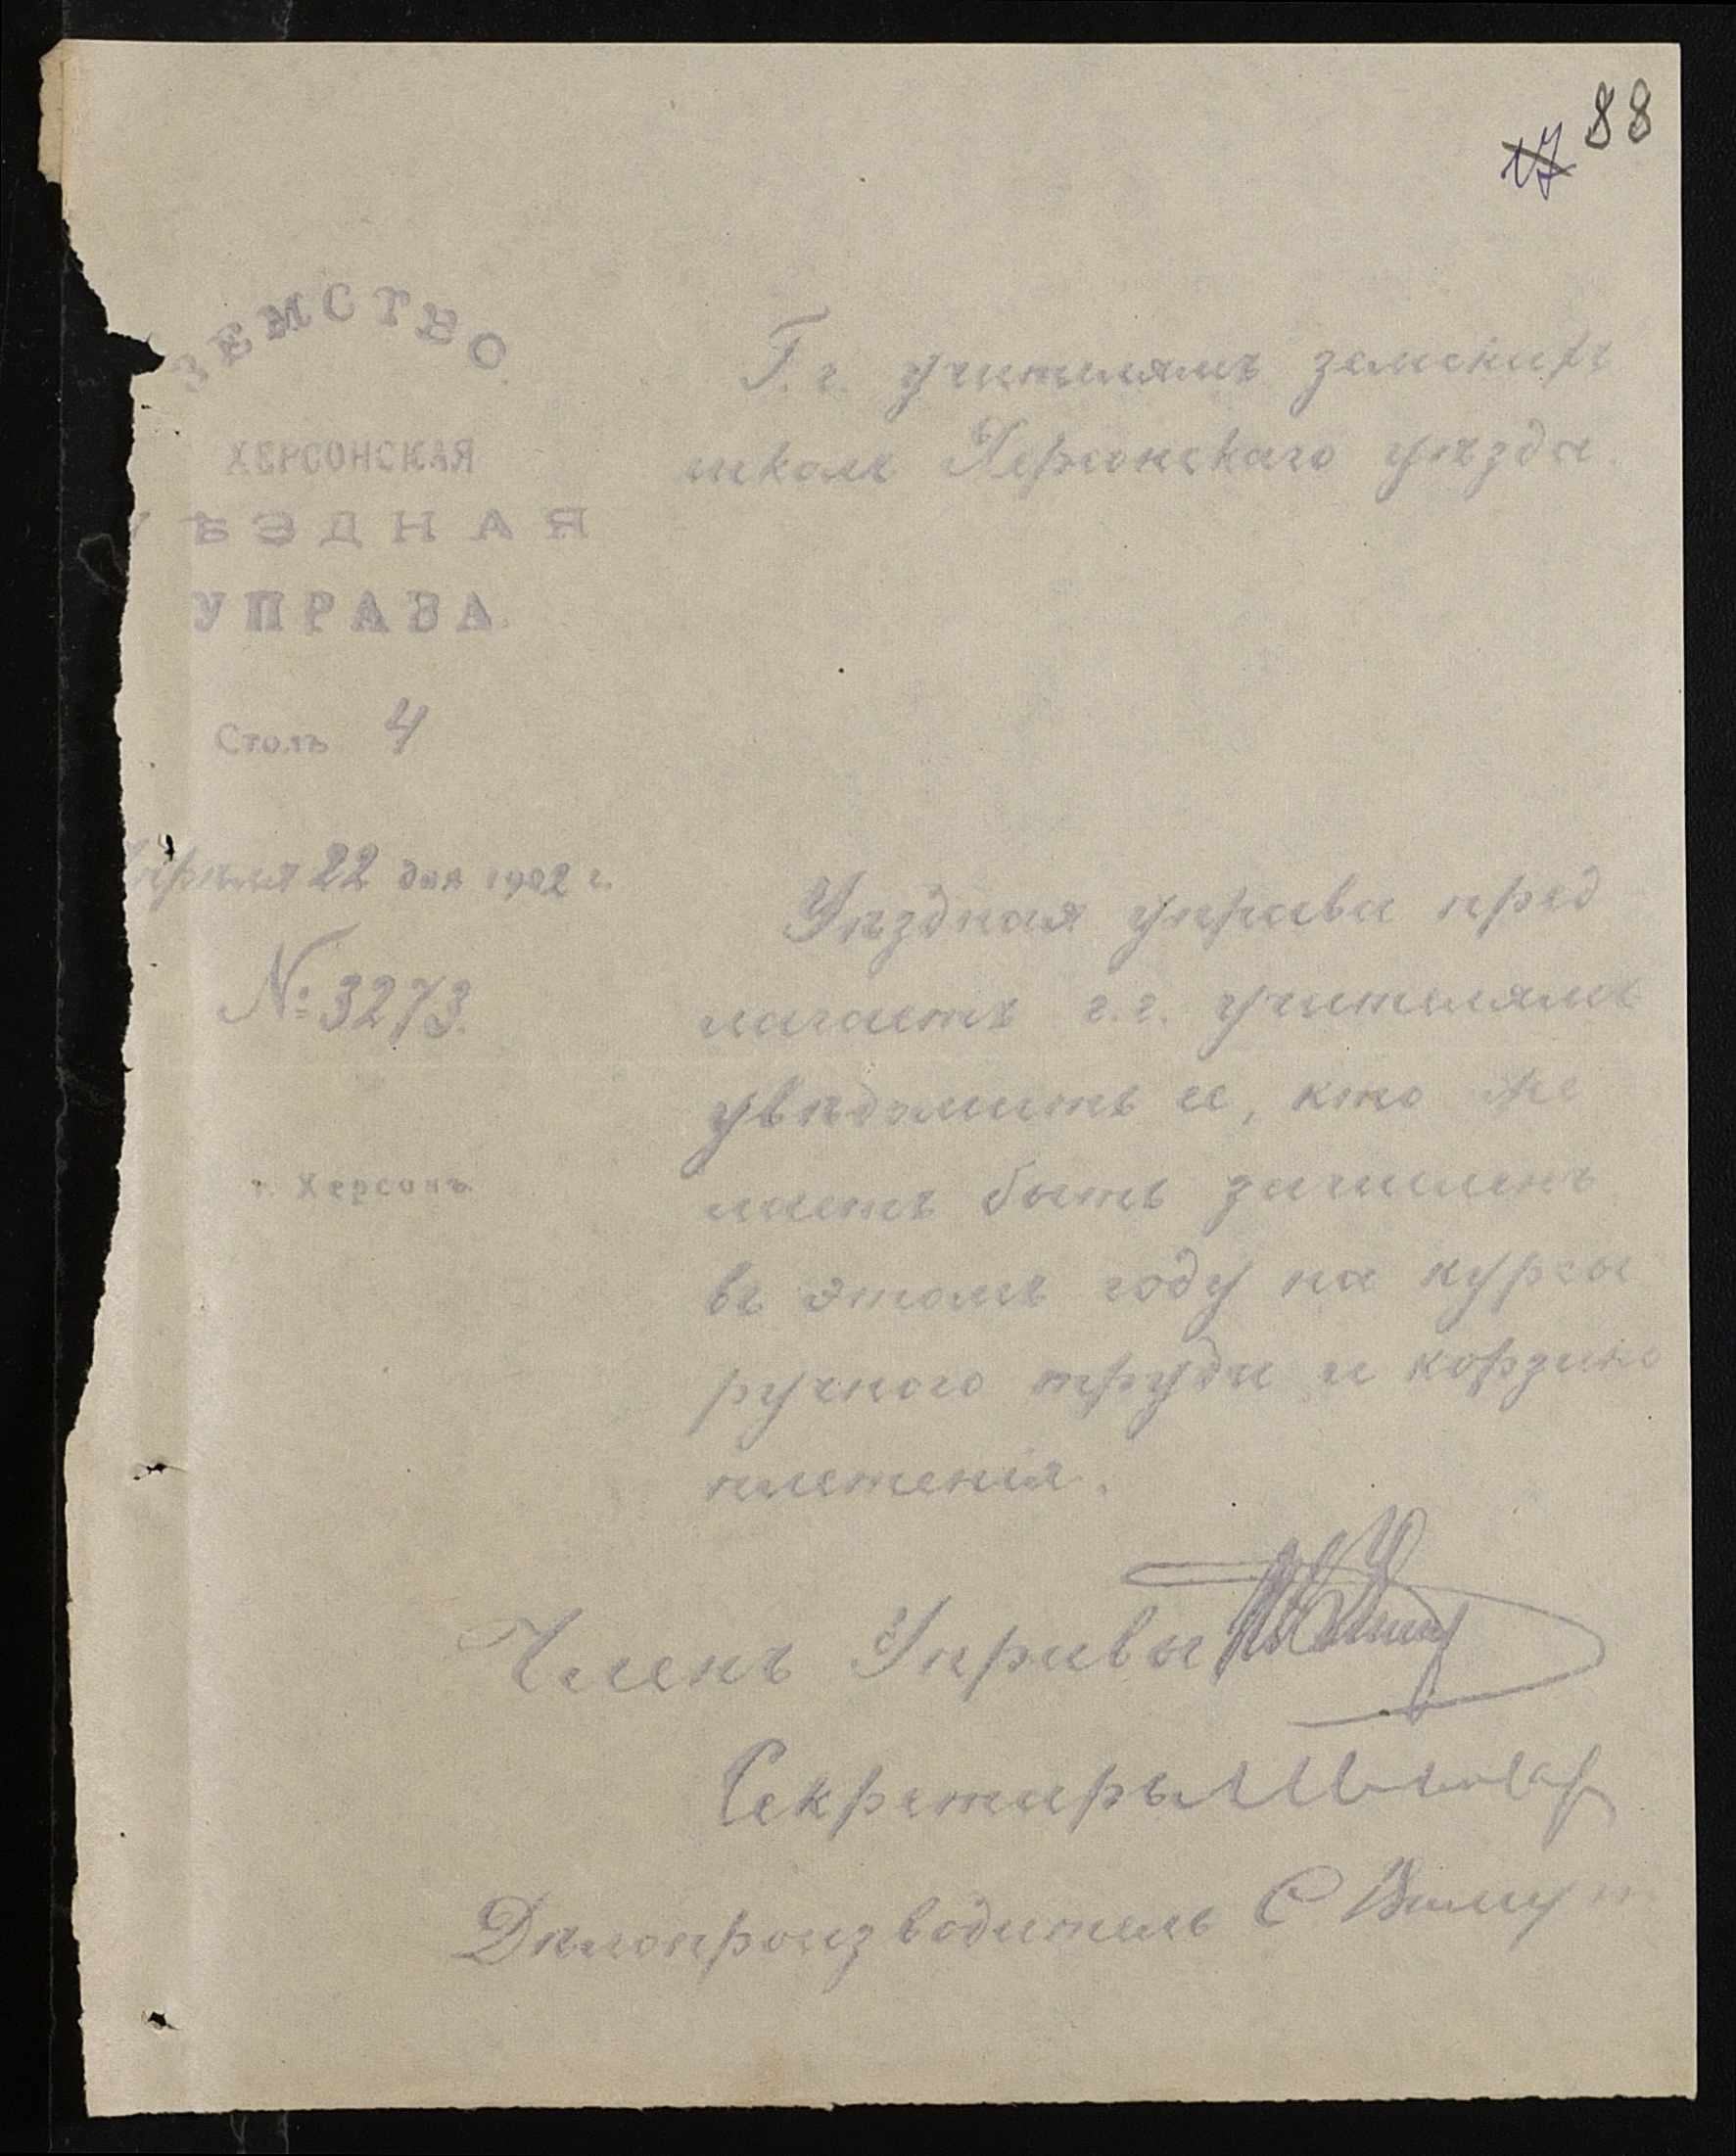 88
17
ЗЕМСТВО.
ХЕРСОНСКАЯ
УѢЗДНАЯ
УПРАВА.
Столъ 4
Апрѣля 22 дня 1902 г.
№ 3273.
г. Херсонъ.
Г.г. учителямъ земскихъ
школъ Херсонскаго уѣзда.
Уѣздная управа пред
лагаетъ г.г. учителямъ
увѣдомить ее, кто же
лаетъ быть зачисленъ
въ этомъ году на курсы
ручного труда и корзино
плетенія.
Членъ Управы
Секретарь
Дѣлопроизводитель С.